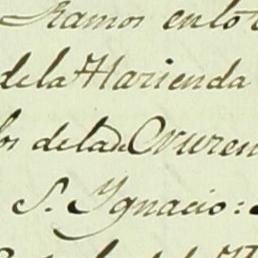 Ramos en lo
de la Harienda
los de la de Ururen
S. Ygnacio: